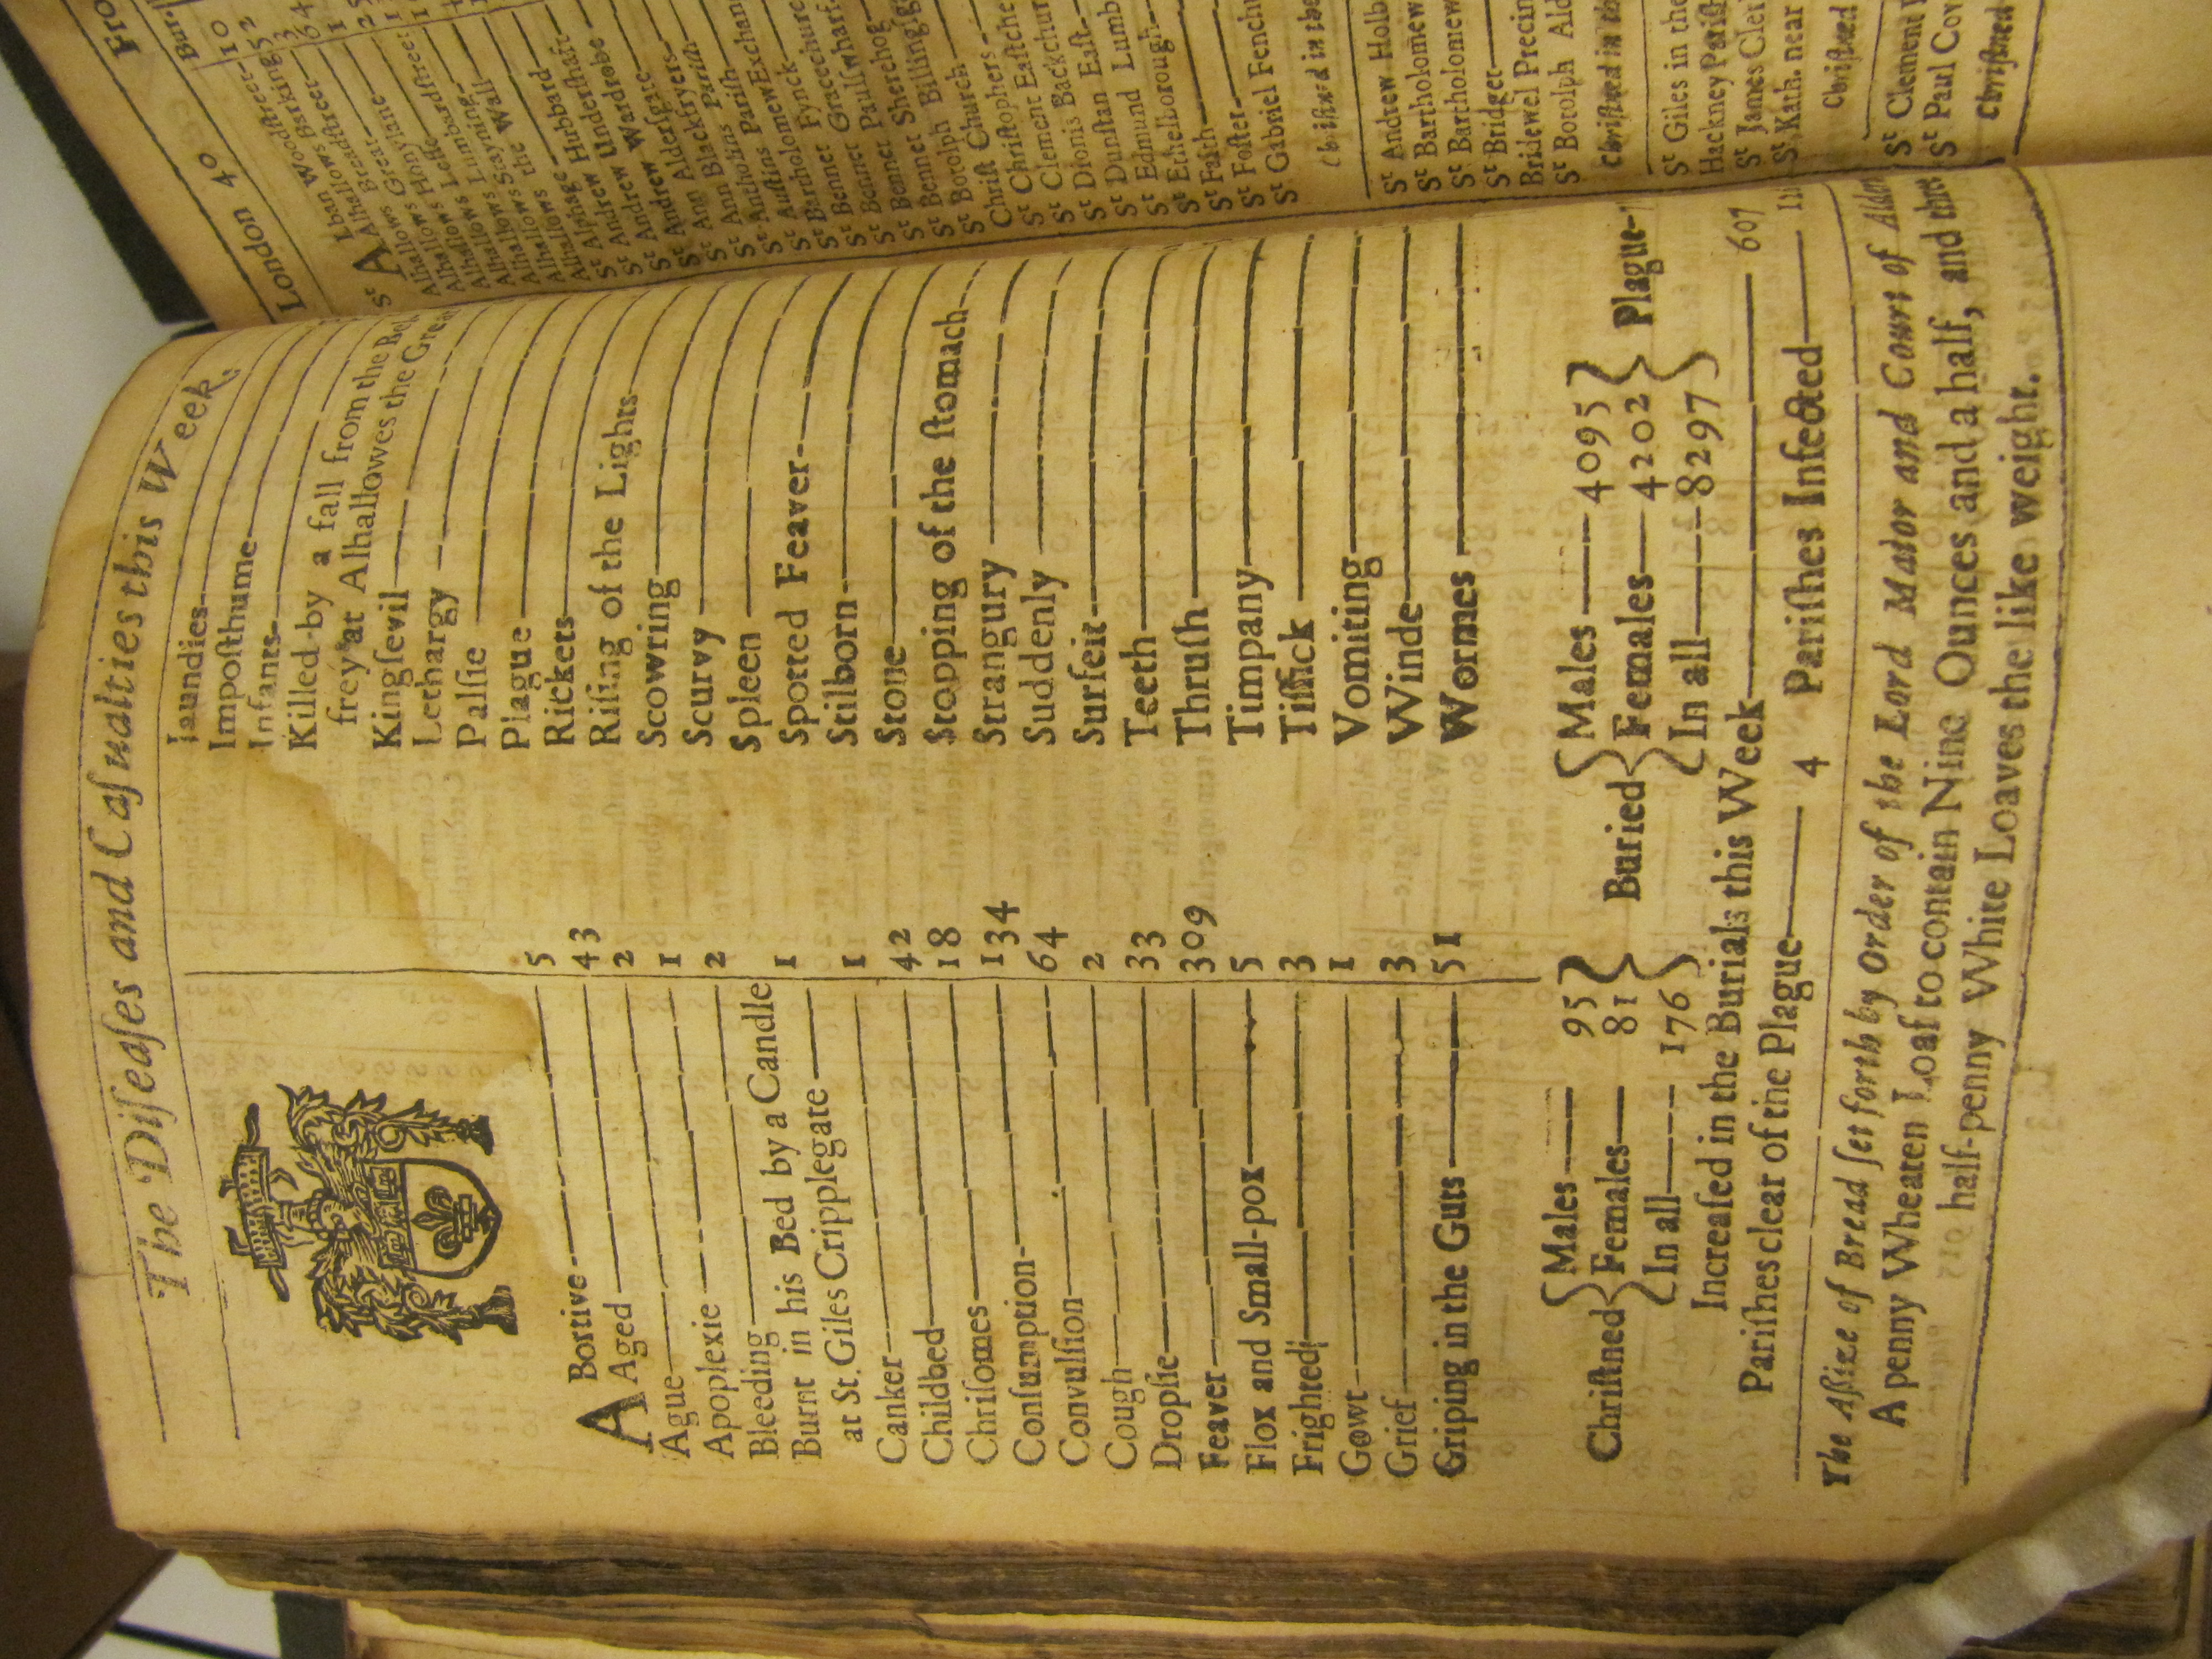 The Diſeaſes and Caſualties this Week.
ABortive 5
Aged 43
Ague 2
Apoplexie 1
Bleeding 2
Burnt in his Bed by a Candle
at St. Giles Cripplegate 1
Canker 1
Childbed 42
Chriſomes 18
Conſumption 134
Convulſion 64
Cough 2
Dropſie 33
Feaver 309
Flox and Small-pox 5
Frighted 3
Gowt 1
Grief 3
Griping in the Guts 51
Jaundies
Impoſthume
Infants
Killed by a fall from the
frey at Alhallowes the
Kingſevil
Lethargy
Palſie
Plague
Rickets
Riſing of the Lights
Scowring
Scurvy
Spleen
Spotted Feaver
Stilborn
Stone
Stopping of the ſtomach
Strangury
Suddenly
Surfeit
Teeth
Thruſh
Timpany
Tiſſick
Vomiting
Winde
Wormes
Chriſtned { Males 95 Females 81 In all 176 }
Buried { Males 4095 Females 4202 In all 8297 } Plague
Increaſed in the Burials this Week 607
Pariſhes clear of the Plague 4 Pariſhes Infected
The Aſſize of Bread ſet forth by Order of the Lord Maior and Court of
A penny Wheaten Loaf to contain Nine Ounces and a half, and three
half-penny White Loaves the like weight.
London 40
St Alban Woodſtreet 10
Alhallows Barking 52
Alhallows Breadſtreet 3
Alhallows Great 64
Alhallows Honylane 1
Alhallows Leſſe
Alhallows Lumbardſtreet
Alhallows Stayning
Alhallows the Wall
Alphage
Andrew Hubbard
St Andrew Underſhaft
St Andrew Wardrobe
St Ann Alderſgate
St Ann Blackfryers
St Antholins Pariſh
St Auſtins Pariſh
St Bartholomew Exchan
St Bennet Fynck
St Bennet Gracechurc
St Bennet Paulſwharf
St Bennet Sherehog
St Botolph Billingſg
Chriſt Church
St Chriſtophers
St Clement Eaſtche
St Dionis Backchur
St Dunſtan Eaſt
St Edmund Lumb
St Ethelborough
St Faith
St Foſter
St Gabriel Fenchu
Chriſtned in the
St Andrew Holb
St Bartholomew
St Bartholomew
St Bridget
Bridewel Precin
St Botolph Ald
Chriſtned in th
St Giles in the
Hackney Pariſh
St James Cler
St Kath. near
Chriſtned
St Clement
St Paul Cov
Chriſtned